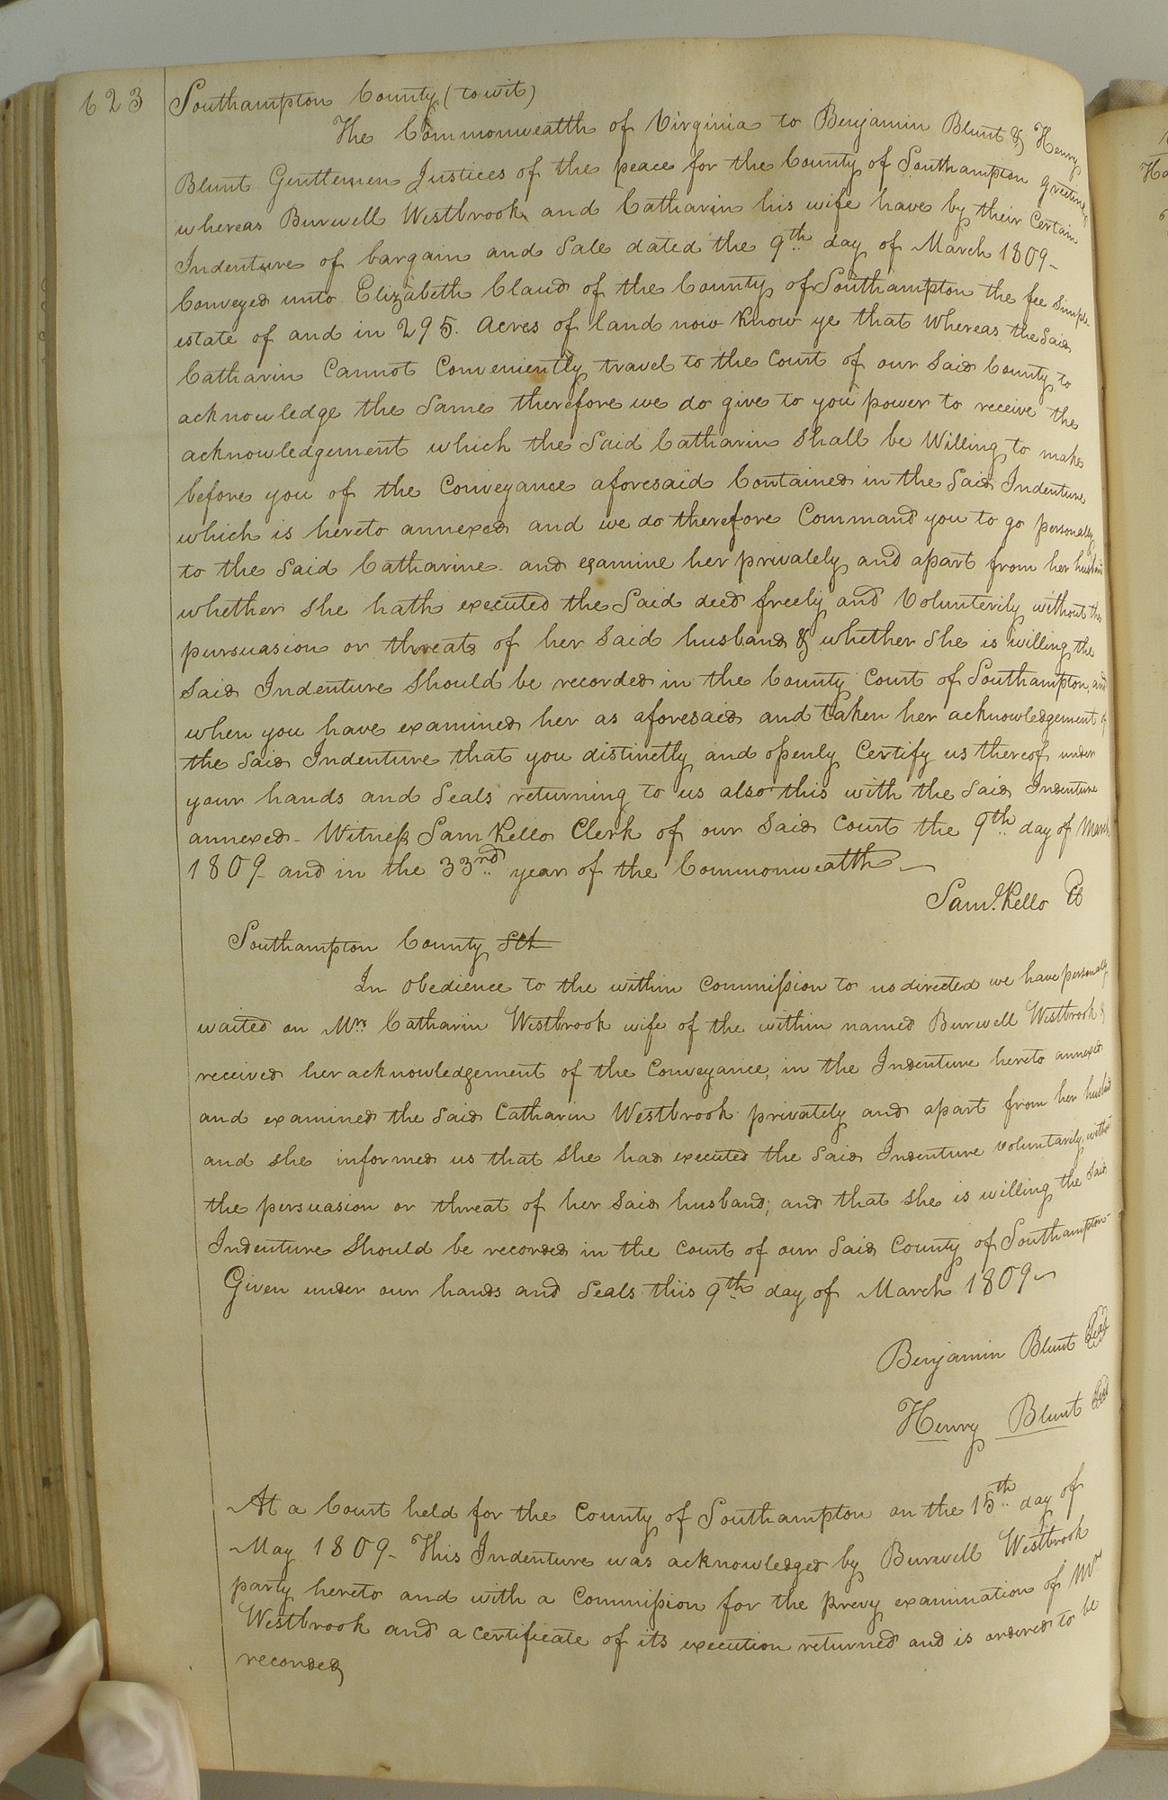 623
Southampton County (to wit)
The Commonwealth of Virginia to Benjamin Blunt & Henry
Blunt Gentlemen Justices of the peace for the County of Southampton greeting
whereas Burwell Westbrook and Catharin his wife have by their Certain
Indenture of bargain and Sale dated the 9th day of March 1809-
Conveyed unto Elizabeth Claud of the County of Southampton the fee Simple
estate of and in 295. Acres of land now Know ye that Whereas the Said
Catharin Cannot Conveniently travel to the Court of our Said County to
acknowledge the Same therefore we do give to you power to receive the
acknowledgement which the Said Catharin Shall be Willing to make
before you of the Conveyance aforesaid Contained in the Said Indenture
which is hereto annexed and we do therefore Command you to go personally
to the Said Catharine. and examine her privately and apart from her husband
whether She hath executed the Said deed freely and Volunterily without the
pursuasion or threats of her Said husband & whether She is willing the
Said Indenture Should be recorded in the County Court of Southampton and
when you have examined her as aforesaid and taken her acknowledgement of
the Said Indenture that you distinctly and openly Certify us thereof under
your hands and Seals returning to us also this with the Said Indenture
annexed- Witness Sam Kello Clerk of our Said Court the 9th day of March
1809 and in the 33rd year of the Commonwealth
Saml. Kello Cl
Southampton County Sct
In Obedience to the within Commission to us directed we have personally
waited on Mrs Catharin Westbrook wife of the within named Burwell Westbrook &
received her acknowledgement of the Conveyance, in the Indenture hereto annexed
and examined the Said Catharin Westbrook privately and apart from her husband
and She informed us that She had executed the Said Indenture voluntarily without
the persuasion or threat of her Said husband; and that She is willing the Said
Indenture Should be recorded in the Court of our Said County of Southampton-
Given under our hands and Seals this 9th day of March 1809
Benjamin Blunt Seal
Henry Blunt Seal
At a Court held for the County of Southampton on the 15th day of
May 1809- This Indenture was acknowledged by Burwell Westbrook
party hereto and with a Commission for the Prevy examination of Mrs
Westbrook and a certificate of its execution returned and is ordered to be
recorded